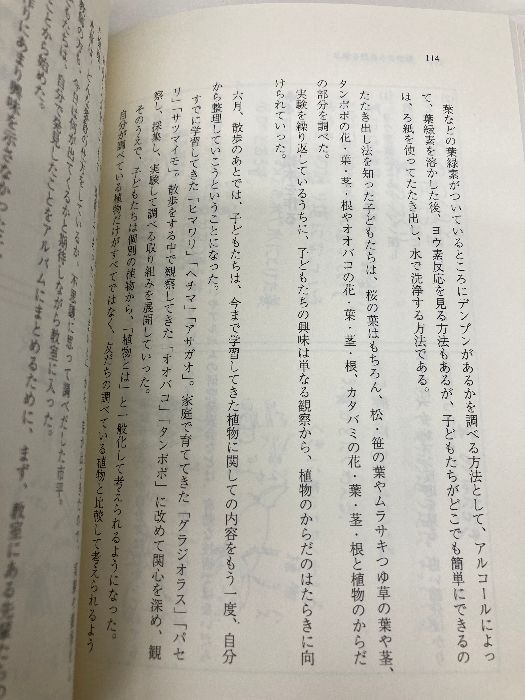 114
葉などの葉緑素がついているところにデンプンがあるかを調べる方法として、アルコールによっ
て、葉緑素を溶かした後、ヨウ素反応を見る方法もあるが、子どもたちがどこでも簡単にできるの
は、ろ紙を使ってたたき出し、水で洗浄する方法である。
たたき出し法を知った子どもたちは、桜の葉はもちろん、松・笹の葉やムラサキつゆ草の葉や茎、
タンポポの花・葉・茎・根やオオバコの花・葉・茎・根、カタバミの花・葉・茎・根と植物のからだ
の部分を調べた。
実験を繰り返しているうちに、子どもたちの興味は単なる観察から、植物のからだのはたらきに向
けられていった。
六月、散歩のあとでは、子どもたちは、今まで学習してきた植物に関しての内容をもう一度、自分
から整理していこうということになった。
すでに学習してきた「ヒマワリ」「ヘチマ」「アサガオ」。家庭で育ててきた「グラジオラス」「パセ
リ」「サツマイモ」。散歩をする中で観察してきた「オオバコ」「タンポポ」に改めて関心を深め、観
察し、採集し、実験して調べる取り組みを展開していった。
そのうえで、子どもたちは個別の植物から、「植物とは」と一般化して考えられるようになった。
自分が調べている植物だけがすべてではなく、友だちの調べている植物と比較して考えられるよう
不思議に思って調べだした市平。
今日は何が出てくるかと期待しながら教室に入った。
もたちは、自分で発見したことをアルバムにまとめるために、まず、教室にある先輩たちの
ことから始めた。
作りにあまり興味を示さなかった